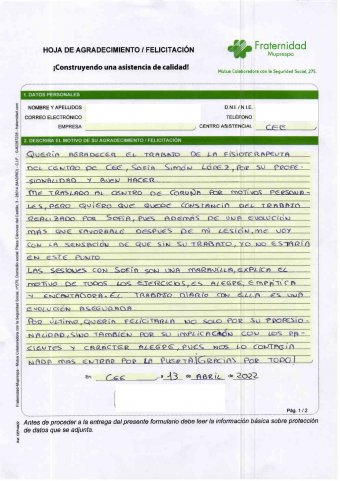 HOJA DE AGRADECIMIENTO / FELICITACIÓN
¡Construyendo una asistencia de calidad!
Fraternidad
Muprespa
Mutua Colaboradora con la Seguridad Social, 275.
1. DATOS PERSONALES
NOMBRE Y APELLIDOS
D.N.I. / N.I.E.
CORREO ELECTRÓNICO
TELÉFONO
EMPRESA
CENTRO ASISTENCIAL CEE
2. DESCRIBA EL MOTIVO DE SU AGRADECIMIENTO / FELICITACIÓN
QUERÍA AGRADECER EL TRABAJO DE LA FISIOTERAPEUTA
DEL CENTRO DE CEE, SOFÍA SIMÓN LÓPEZ, POR SU PROFE-
SIONALIDAD Y BUEN HACER.
ME TRASLADO AL CENTRO DE CORUÑA POR MOTIVOS PERSONA-
LES, PERO QUIERO QUE QUEDE CONSTANCIA DEL TRABAJO
REALIZADO POR SOFÍA, PUES ADEMÁS DE UNA EVOLUCIÓN
MÁS QUE FAVORABLE DESPUES DE MI LESIÓN, ME VOY
CON LA SENSACIÓN DE QUE SIN SU TRABAJO, YO NO ESTARÍA
EN ESTE PUNTO.
LAS SESIONES CON SOFÍA SON UNA MARAVILLA, EXPLICA EL
MOTIVO DE TODOS LOS EJERCICIOS, ES ALEGRE, EMPÁTICA
Y ENCANTADORA. EL TRABAJO DIARIO CON ELLA ES UNA
EVOLUCIÓN ASEGURADA.
POR ÚLTIMO, QUERÍA FELICITARLA NO SOLO POR SU PROFESIO-
NALIDAD, SINO TAMBIÉN POR SU IMPLICACIÓN CON LOS PA-
CIENTES Y CARÁCTER ALEGRE, PUES NOS LO CONTAGIA
NADA MAS ENTRAR POR LA PUERTA ¡GRACIAS POR TODO!
En CEE, a 13 de ABRIL de 2022
Pág. 1 / 2
Antes de proceder a la entrega del presente formulario debe leer la información básica sobre protección
de datos que se adjunta.